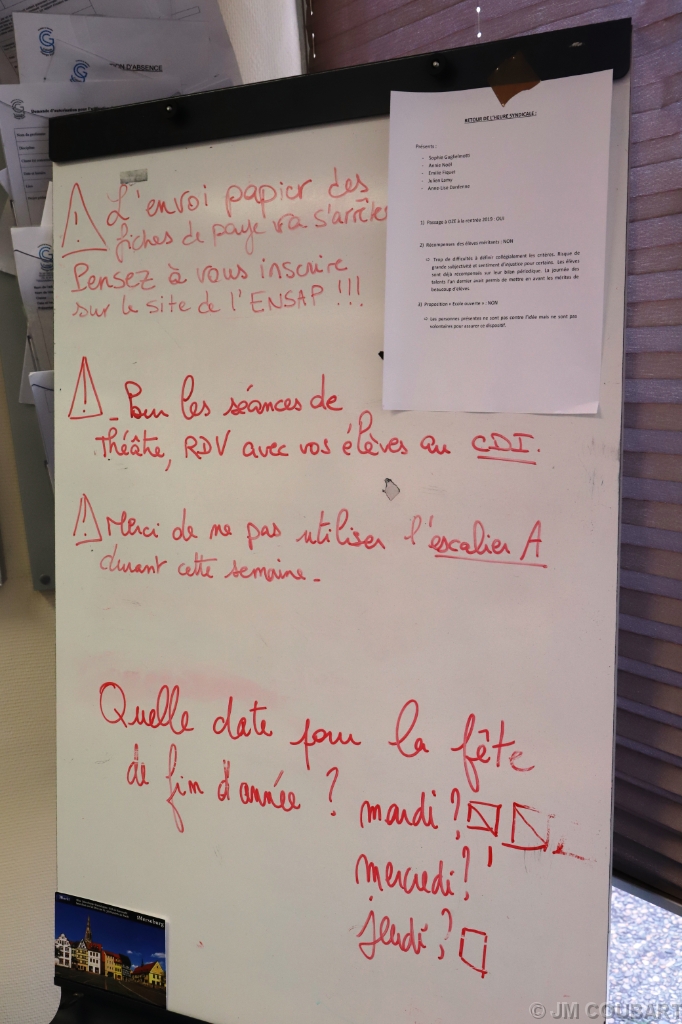 ION D'ABSENCE
RETOUR DE L'HEURE SYNDICALE :
Présents :
- Sophie Guglielmetti
- Annie Noël
- Emilie Fisper
- Julien Lamy
- Anne-Lise Dardenne
1) Passage à DZE à la rentrée 2019 : OUI
2) Récompenses des élèves méritants : NON
Trop de difficultés à définir collégialement les critères. Risque de
grande subjectivité et sentiment d'injustice pour certains. Les élèves
sont déjà récompensés sur leur bilan périodique. La journée des
talents l'an dernier avait permis de mettre en avant les mérites de
beaucoup d'élèves.
3) Proposition « Ecole ouverte » : NON
Les personnes présentes ne sont pas contre l'idée mais ne sont pas
volontaires pour assurer ce dispositif.
L'envoi papier des
fiches de paye va s'arrêter
Pensez à vous inscrire
sur le site de l'ENSAP !!!
- Pour les séances de
théâtre, RDV avec vos élèves au CDI.
Merci de ne pas utiliser l'escalier A
durant cette semaine -
Quelle date pour la fête
de fin d'année ? mardi ?
mercredi ?
jeudi ?
Merseburg
© JM COUBART